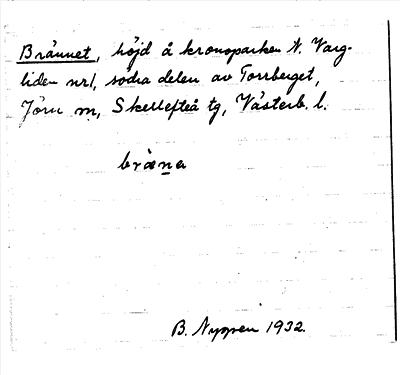 Brännet, höjd å kronoparken N. Varg-
liden nr 1, södra delen av Torrberget,
Jörn sn, Skellefteå tg, Västerb. l.
bræna
B. Nygren 1932.